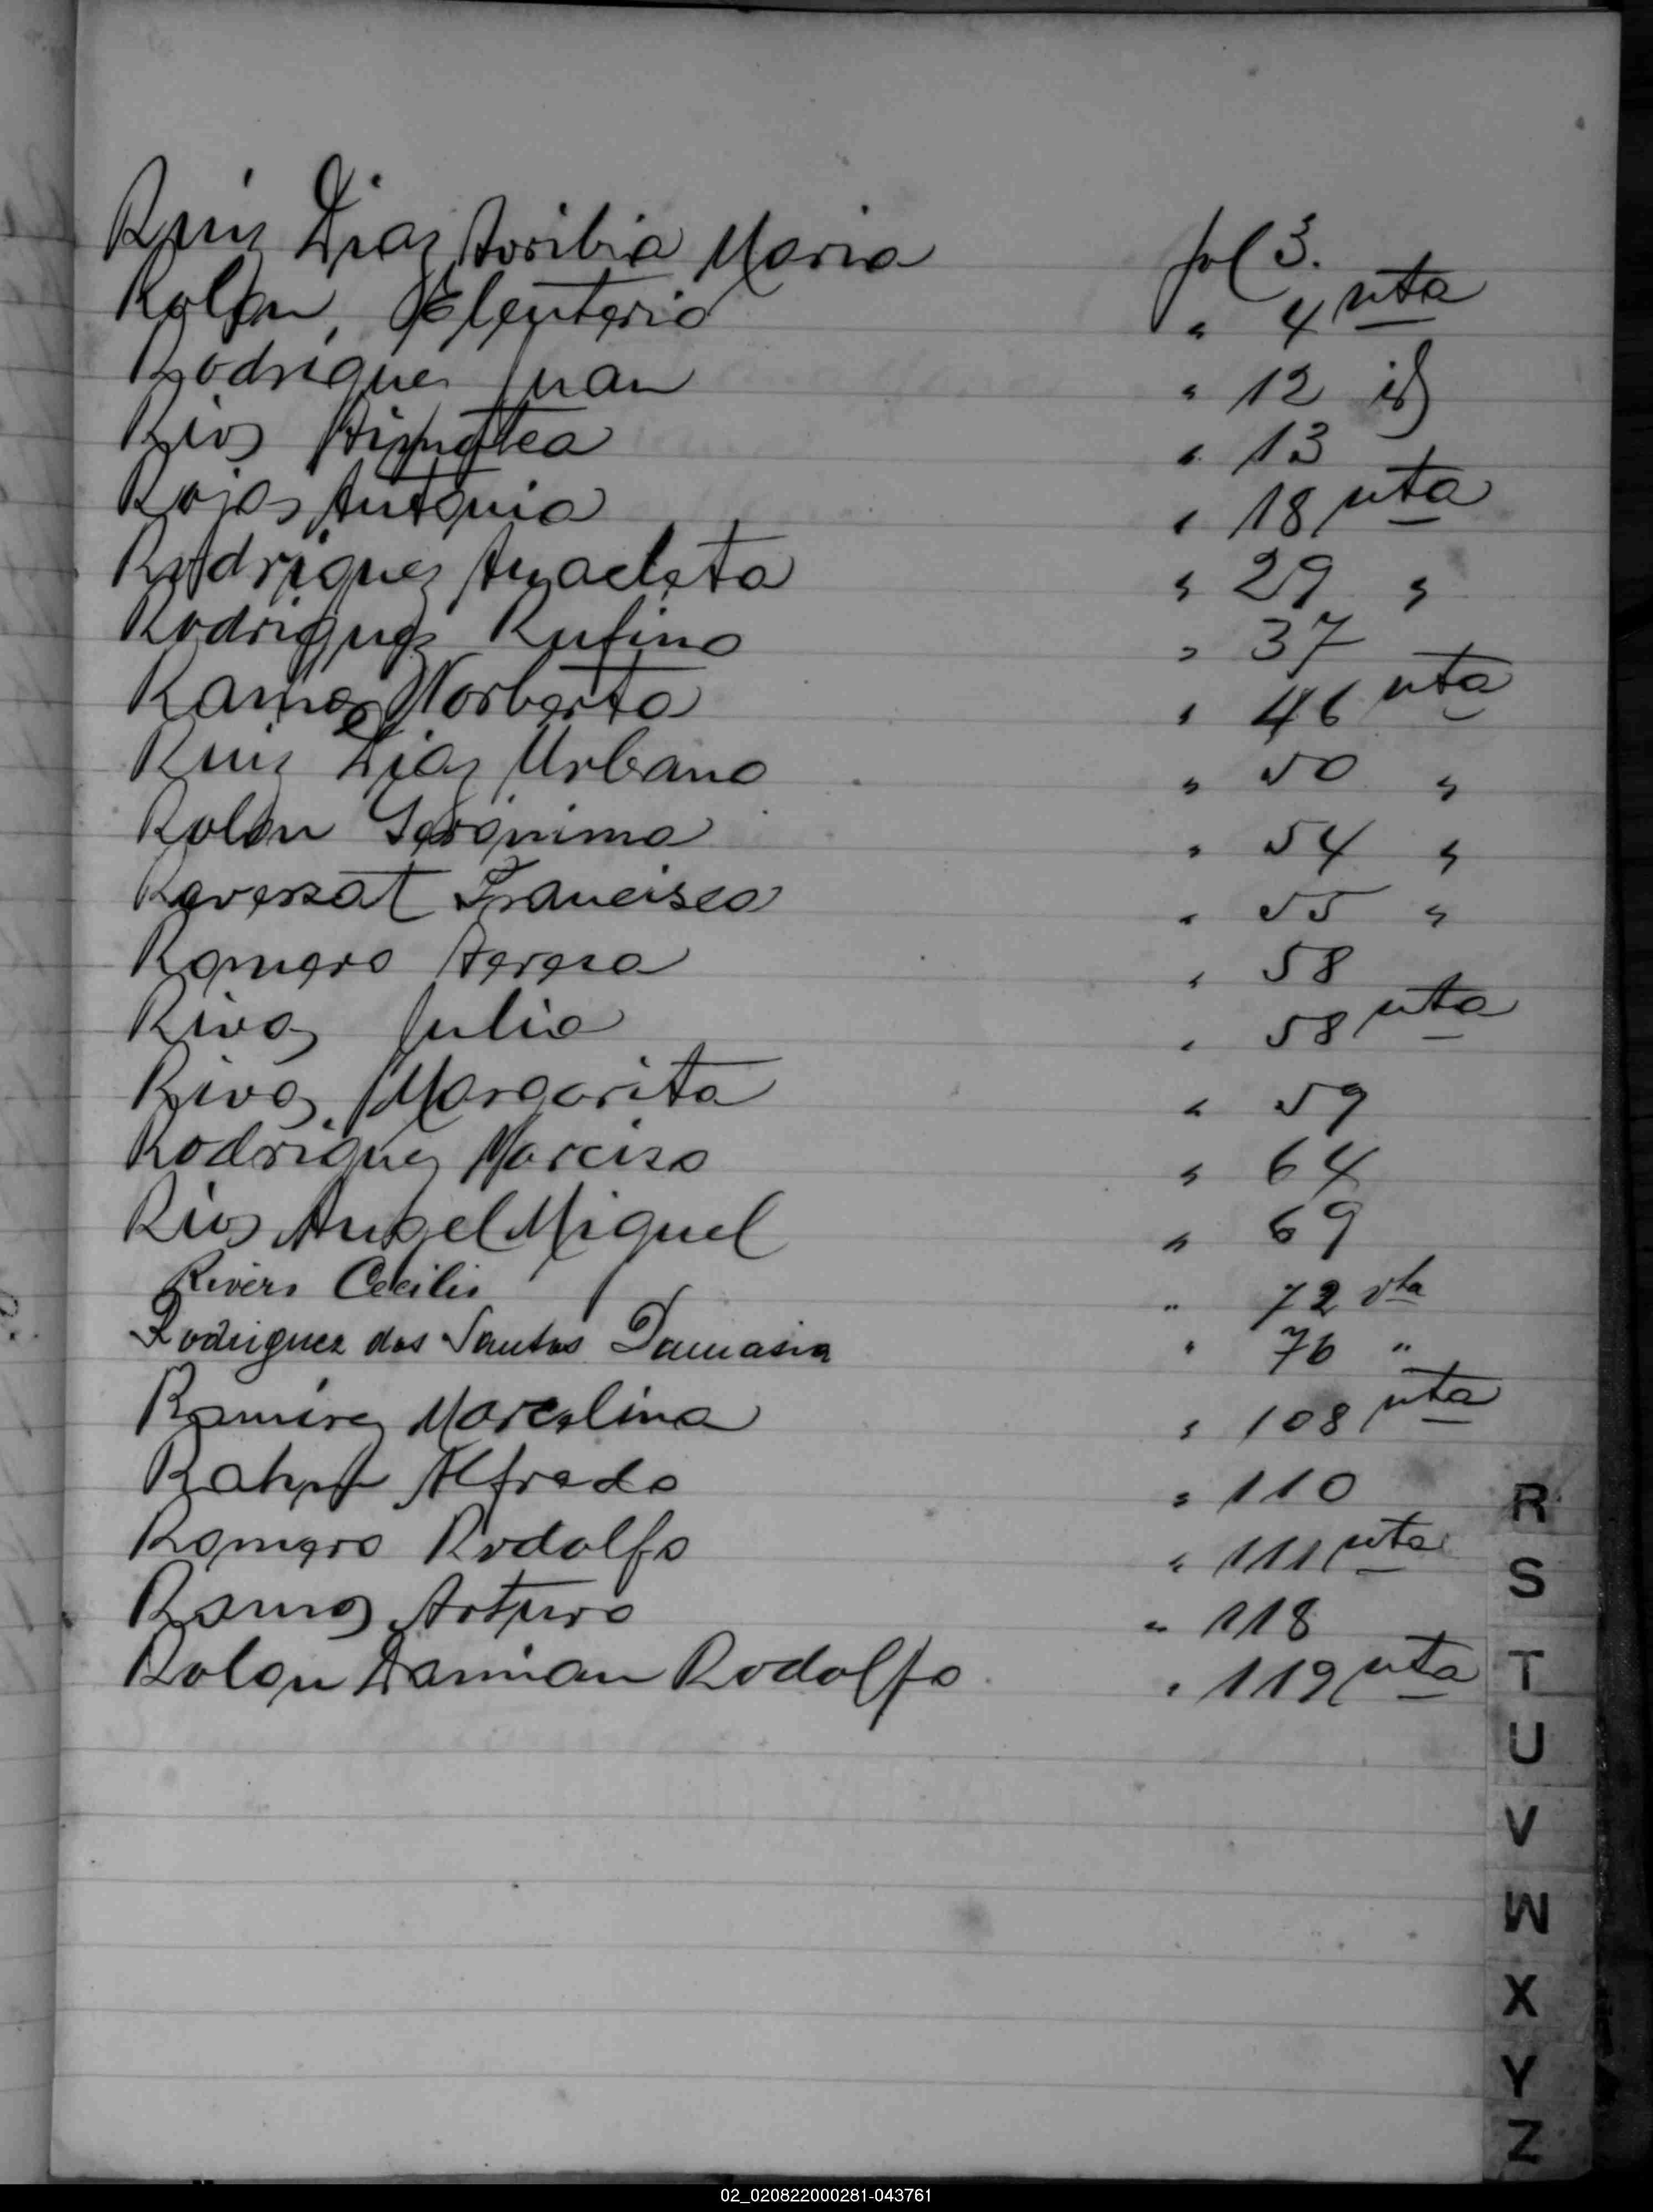 Ruiz Diaz Toribia Maria fol 3.
Rolon, Eleuterio " 4 vta
Rodriguez Juan " 12 id
Rios Timotea " 13
Rojas Antonia " 18 vta
Rodriguez Anacleta " 29 "
Rodriguez Rufino " 37
Ramos Norberta " 46 vta
Ruiz Diaz Urbano " 50 "
Rolon Geronima " 54 "
Raverzat Francisco " 55 "
Romero Teresa " 58
Rivas Julia " 58 vta
Rivas Margarita " 59
Rodriguez Narciso " 64
Rios Angel Miguel " 69
Rivero Cecilio " 72 vta
Rodriguez dos Santos Damasia " 76 "
Ramirez Marcelina " 108 vta
Alfredo " 110
Romero Rodolfo " 111 vta
Ramos Arturo " 118
Rolon Damian Rodolfo " 119 vta
R
S
T
U
V
W
X
Y
Z
02_020822000281-043761